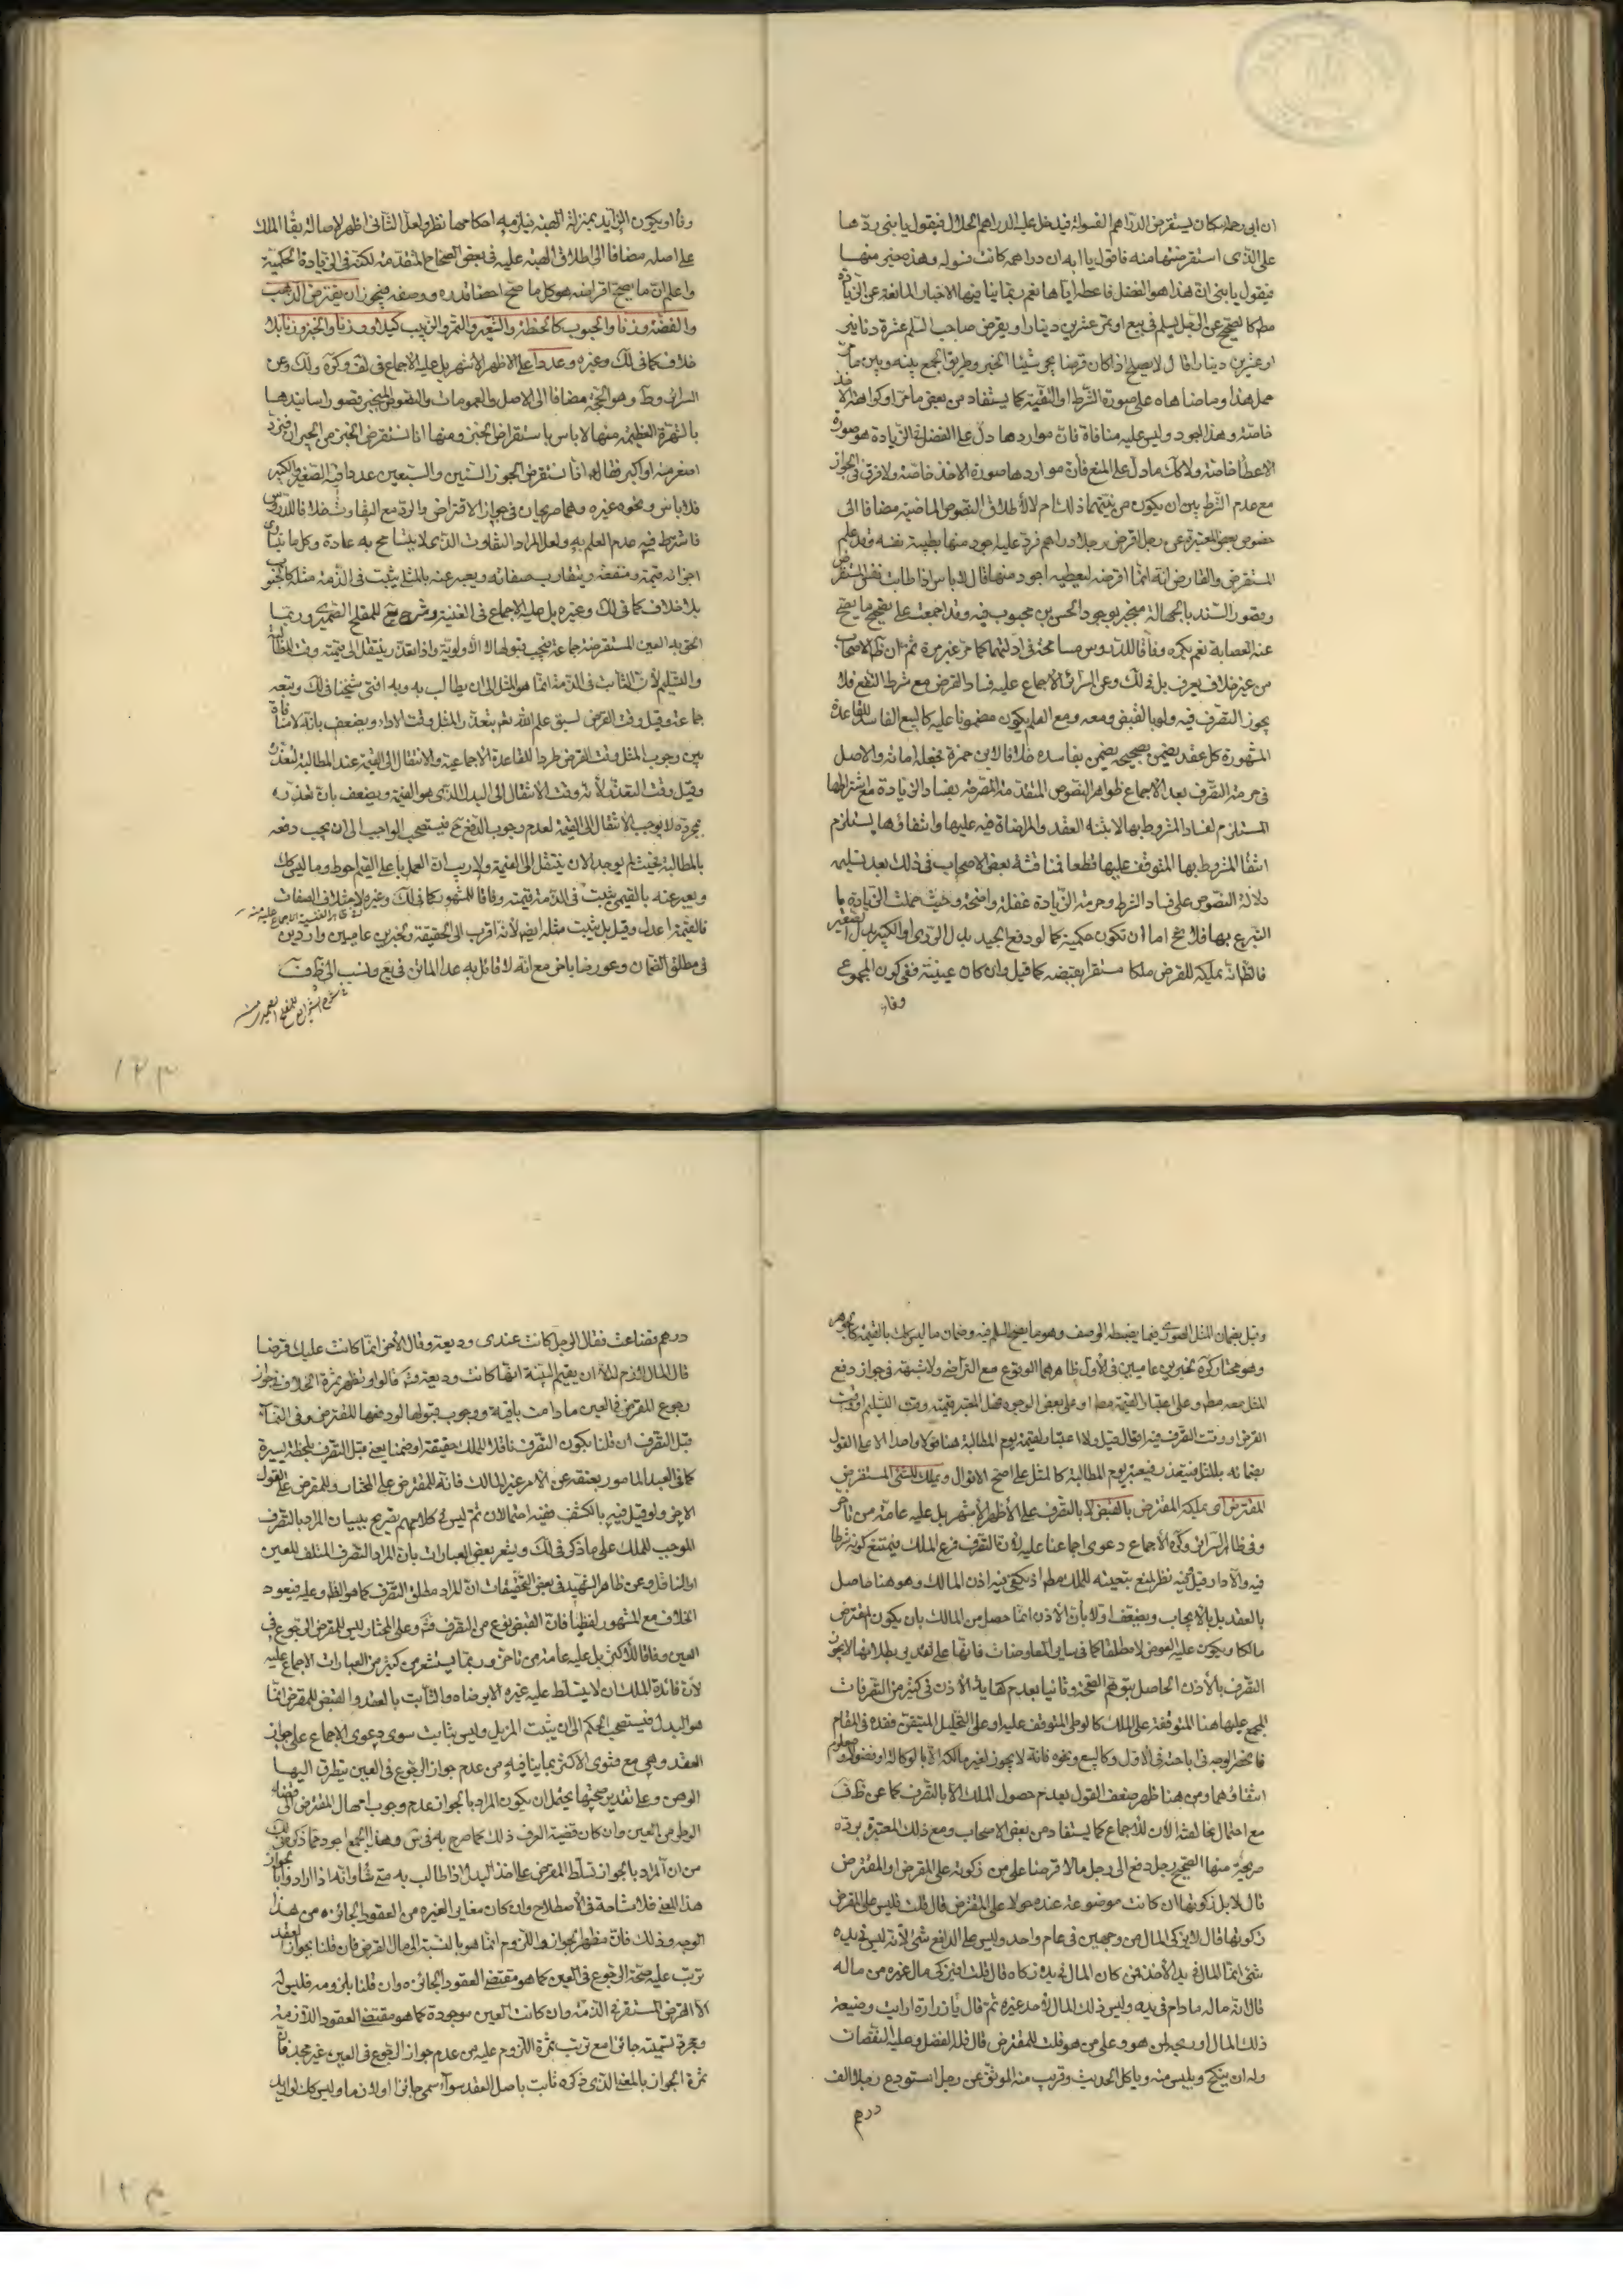 ان ابي رحمه كان يستقرض الدراهم الفسولة فيدخل عليه الدراهم الجلال فيقول يا بني ردها
على الذي استقرضتها منه فاقول يا ابه ان دراهمه كانت فسولة وهذه خير منها
فيقول يا بني ان هذا هو الفضل فاعطه اياها نعم ربما ينافيها الاخبار المانعة عن الزيادة
مط كالصحيح عن الرجل يسلم في بيع او تمر عشرين دينارا ويقرض صاحب السلم عشرة دنانير
او عشرين دينارا قال لا يصلح اذا كان قرضا يجر شيئا الخبر وطريق الجمع بينه وبين ما مر
حمل هذا وما ضاهاه على صورة الشرط او التقية كما يستفاد من بعض ما مر او كراهة الاخذ
خاصة وهذا اجود وليس عليه منافاة فان مواردها دل على الفضل في الزيادة هو صورة
الاعطاء خاصة ولا كك ما دل على المنع فان مواردها صورة الاخذ خاصة ولا فرق في الجواز
مع عدم الشرط بين ان يكون من نيتهما ذلك ام لا لاطلاق النصوص الماضية مضافا الى
خصوص بعض المعتبرة عن رجل اقرض رجلا دراهم فرد عليه اجود منها بطيبة نفسه وقد علم
المستقرض والقارض انه انما اقرضه ليعطيه اجود منها قال لا باس اذا طابت نفس المستقرض
وقصور السند بالجهالة منجبر بوجود الحسن بن محبوب فيه وقد اجمعت على تصحيح ما يصح
عنه العصابة نعم يكره وفاقا للدروس مسامحة في ادلتهما كما مر غير مرة ثم ان ظ الاصحاب
من غير خلاف يعرف بل في لك وعن السرائر الاجماع عليه فساد القرض مع شرط النفع فلا
يجوز التصرف فيه ولو بالقبض ومعه ومع العلم يكون مضمونا عليه كالبيع الفاسد للقاعدة
المشهورة كل عقد يضمن بصحيحه يضمن بفاسده خلافا لابن حمزة فجعله امانة والاصل
في حرمة التصرف بعد الاجماع ظواهر النصوص المتقدمة المصرحة بفساد الزيادة مع اشتراطها
المستلزم لفساد المشروط بها لابتناء العقد والمراضاة فيه عليها وانتفاؤها يستلزم
انتفاء المشروط بها المتوقف عليها قطعا فمناقشة بعض الاصحاب في ذلك بعد تسليمه
دلالة النصوص على فساد الشرط وحرمة الزيادة غفلة واضحة وحيث حملت الزيادة ما
التبرع بها فلا يخ اما ان تكون حكمية كما لو دفع الجيد بدل الردي او الكبير بدل الصغير
فالظ انه يملكه المقرض ملكا مستقرا بقبضه كما قيل وان كان عينية ففي كون المجموع
وفاء
وفاء او يكون الزايد بمنزلة الهبة فيلزمه احكامها نظر ولعل الثاني اظهر لاصالة بقاء الملك
على اصله مضافا الى اطلاق الهبة عليه في بعض الصحاح المتقدمة لكنه في الزيادة الحكمية
واعلم ان ما يصح اقراضه هو كل ما صح احصاء قدره ووصفه فيجوز ان يقترض الذهب
والفضة وزنا والحبوب كالحنطة والشعير والتمر والزبيب كيلا ووزنا والخبز وزنا بلا
خلاف كما في لك وغيره وعددا على الاظهر الاشهر بل عليه الاجماع في لف وكره ولك وعن
السرائر وط وهو الحجة مضافا الى الاصل والعمومات والنصوص المنجبر قصور اسانيدها
بالشهرة العظيمة منها لا باس باستقراض الخبز ومنها انا نستقرض الخبز من الجيران فنرد
اصغر منه او اكبر فقال ع انا نستقرض الجوز الستين والسبعين عددا فيه الصغير والكبير
فلا باس ونحوه غيره وهما صريحان في جواز الاقتراض والرد مع التفاوت خلافا للدروس
فاشترط فيه عدم العلم به ولعل المراد التفاوت الذي لا يتسامح به عادة وكل ما يتساوى
اجزائه قيمة ومنفعة ويتقارب صفاته ويعبر عنه بالمثلي يثبت في الذمة مثله كالحبوب
بلا خلاف كما في لك وغيره بل عليه الاجماع في الغنية وشرح يع للمفلح الصيمري وربما
الحق به العين المستقرضة جماعة فيجب قبولها للاولوية واذا تعذر ينتقل الى قيمته وقت المطالبة
والتسليم لان الثابت في الذمة انما هو المثل الى ان يطالب به وبه افتى شيخنا في لك وتبعه
جماعة وقيل وقت القرض لسبق علم الله تم بتعذر المثل وقت الاداء ويضعف بانه لا منافاة
بين وجوب المثل وقت القرض طردا للقاعدة الاجماعية والانتقال الى القيمة عند المطالبة لتعذره
وقيل وقت التعذر لانه وقت الانتقال الى البدل الذي هو القيمة ويضعف بان تعذره
بمجرده لا يوجب الانتقال الى القيمة لعدم وجوب الدفع ح فيستصحب الواجب الى ان يجب دفعه
بالمطالبة فحيث لم يوجد الان ينتقل الى القيمة ولا ريب ان العمل باعلى القيم احوط وما ليس كك
ويعبر عنه بالقيمي يثبت في الذمة قيمته وفاقا للمشهور كما في لك وغيره لاختلاف الصفات
فالقيمة اعدل وقيل بل يثبت مثله ايضا لانه اقرب الى الحقيقة ولخبرين عاميين واردين
في مطلق الضمان وعورضا باخر مع انه لا قائل به عدا الماتن في يع ونسب الى ظ ف
وقيل بضمان المثل الصوري فيما يضبطه الوصف وهو ما يصح السلم فيه وضمان ما ليس كك بالقيمة كالجواهر
وهو مختار كره لخبرين عاميين في الاول ظاهرهما الوقوع مع التراضي ولا شبهة في جواز دفع
المثل معه مط وعلى اعتبار القيمة مط او على بعض الوجوه فهل المعتبر قيمته وقت التسليم او وقت
القرض او وقت التصرف فيه اقوال قيل ولا اعتبار بقيمته يوم المطالبة هنا قولا واحدا الا على القول
بضمانه بالمثل فيتعذر فيعتبر يوم المطالبة كالمثل على اصح الاقوال ويملك الشئ المستقرض
المقترض اي يملكه المقترض بالقبض لا بالتصرف على الاظهر الاشهر بل عليه عامة من تاخر
وفي ظ السرائر وكره الاجماع دعوى اجماعنا عليه لان التصرف فرع الملك فيمتنع كونه شرطا
فيه والا دار قيل فيه نظر لمنع تبعيته للملك مط اذ يكفي فيه اذن المالك وهو هنا حاصل
بالعقد بل بالايجاب ويضعف اولا بان الاذن انما حصل من المالك بان يكون المقترض
مالكا ويكون عليه العوض لا مطلقا كما في ساير المعاوضات فانها على تقدير بطلانها لا يجوز
التصرف بالاذن الحاصل بتوهم الصحة وثانيا بعدم كفاية الاذن في كثير من التصرفات
المجمع عليها هنا المتوقفة على الملك كالوطي المتوقف عليه او على التحليل المتيقن فقده في المقام
فانحصر الوجه في اباحته في الاول وكالبيع ونحوه فانه لا يجوز لغير مالكه الا بالوكالة او فضولا ومعلوم
انتفاؤهما ومن هنا ظهر ضعف القول بعدم حصول الملك الا بالتصرف كما عن ظ ف
مع احتمال مخالفته الان للاجماع كما يستفاد من بعض الاصحاب ومع ذلك المعتبرة برده
صريحة منها الصحيح رجل دفع الى رجل مالا قرضا على من زكوته على المقرض او المقترض
قال لا بل زكوتها ان كانت موضوعة عنده حولا على المقترض قال قلت فليس على المقرض
زكوتها قال لا يزكى المال من وجهين في عام واحد وليس على الدافع شئ لانه ليس في يده
شئ انما المال في يد الاخذ فمن كان المال في يده زكاه قال قلت افيزكي مال غيره من ماله
قال انه ماله مادام في يده وليس ذلك المال لاحد غيره ثم قال يا زرارة ارايت وضيعة
ذلك المال او ربحه لمن هو وعلى من هو قلت للمقترض قال فله الفضل وعليه النقصان
وله ان ينكح ويلبس منه وياكل الحديث وقريب منه الموثق عن رجل استودع رجلا الف
درهم
درهم فضاعت فقال الرجل كانت عندي وديعة وقال الاخر انما كانت عليك قرضا
قال المال لازم له الا ان يقيم البينة انها كانت وديعة قالوا وتظهر ثمرة الخلاف في جواز
رجوع المقرض في العين ما دامت باقية ووجوب قبولها لو دفعها المقترض وفي النماء
قبل التصرف ان قلنا بكون التصرف ناقلا للملك حقيقة او ضمنا يعني قبل التصرف بلحظة يسيرة
كما في العبد المامور بعتقه عن الامر غير المالك فانه للمقترض على المختار وللمقرض على القول
الاخر ولو قيل فيه بالكشف ففيه احتمالان ثم ليس في كلامهم تصريح ببيان المراد بالتصرف
الموجب للملك على ما ذكر في لك ويشعر بعض العبارات بان المراد التصرف المتلف للعين
او الناقل وعن ظاهر الشهيد في بعض التحقيقات ان المراد مطلق التصرف كما هو الظ وعليه فيعود
الخلاف مع المشهور لفظيا فان القبض نوع من التصرف فتم وعلى المختار ليس للمقرض الرجوع في
العين وفاقا للاكثر بل عليه عامة من تاخر وربما يستشعر من كثير من العبارات الاجماع عليه
لان فائدة الملك ان لا يتسلط عليه غيره الا برضاه والثابت بالعقد والقبض للمقرض انما
هو البدل فيستصحب الحكم الى ان يثبت المزيل وليس بثابت سوى دعوى الاجماع على جواز
العقد وهي مع فتوى الاكثر بما ينافيه من عدم جواز الرجوع في العين يتطرق اليها
الوهن وعلى تقدير صحتها يحتمل ان يكون المراد بالجواز عدم وجوب امهال المقترض الى قضاء
الوطر من العين وان كان قضية العرف ذلك كما صرح به في س وهذا الجمع اجود مما ذكر في لك
من ان المراد بالجواز تسلط المقرض على اخذ البدل اذا طالب به متى شاء وانه اذا ارادوا بالجواز
هذا المعنى فلا مشاحة في الاصطلاح وان كان مغايرا لغيره من العقود الجائزه من هذا
الوجه وذلك فان مظهر الجواز واللزوم انما هو بالنسبة الى مال القرض فان قلنا بجواز العقد
ترتب عليه صحة الرجوع في العين كما هو مقتضى العقود الجائزه وان قلنا بلزومه فليس له
الا القرض المستقر في الذمة وان كانت العين موجودة كما هو مقتضى العقود اللازمة
ومجرد تسميته جائزا مع ترتب ثمرة اللزوم عليه من عدم جواز الرجوع في العين غير مجد فان
ثمرة الجواز بالمعنى الذي ذكره ثابت باصل العقد سواء سمى جائزا او لازما وليس كك